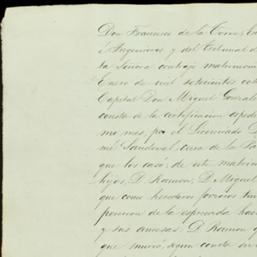 Don Francisco de la Torre, 
é Ingenieros y del Tribunal d
la Señora contrajo matrimon
Enero de mil setecientos och
Capital Don Miguel Gonzale
consta de la certificacion expedi
mo mes, por el Licenciado D
mé Sandoval, cura de la Pa
que los casó, de este matrim
hijos, D. Ramon, D. Miguel
que como herederos forzosos tu
posicion de la espresada hac
y sus anexas. D. Ramon q
que murió, segun consta de